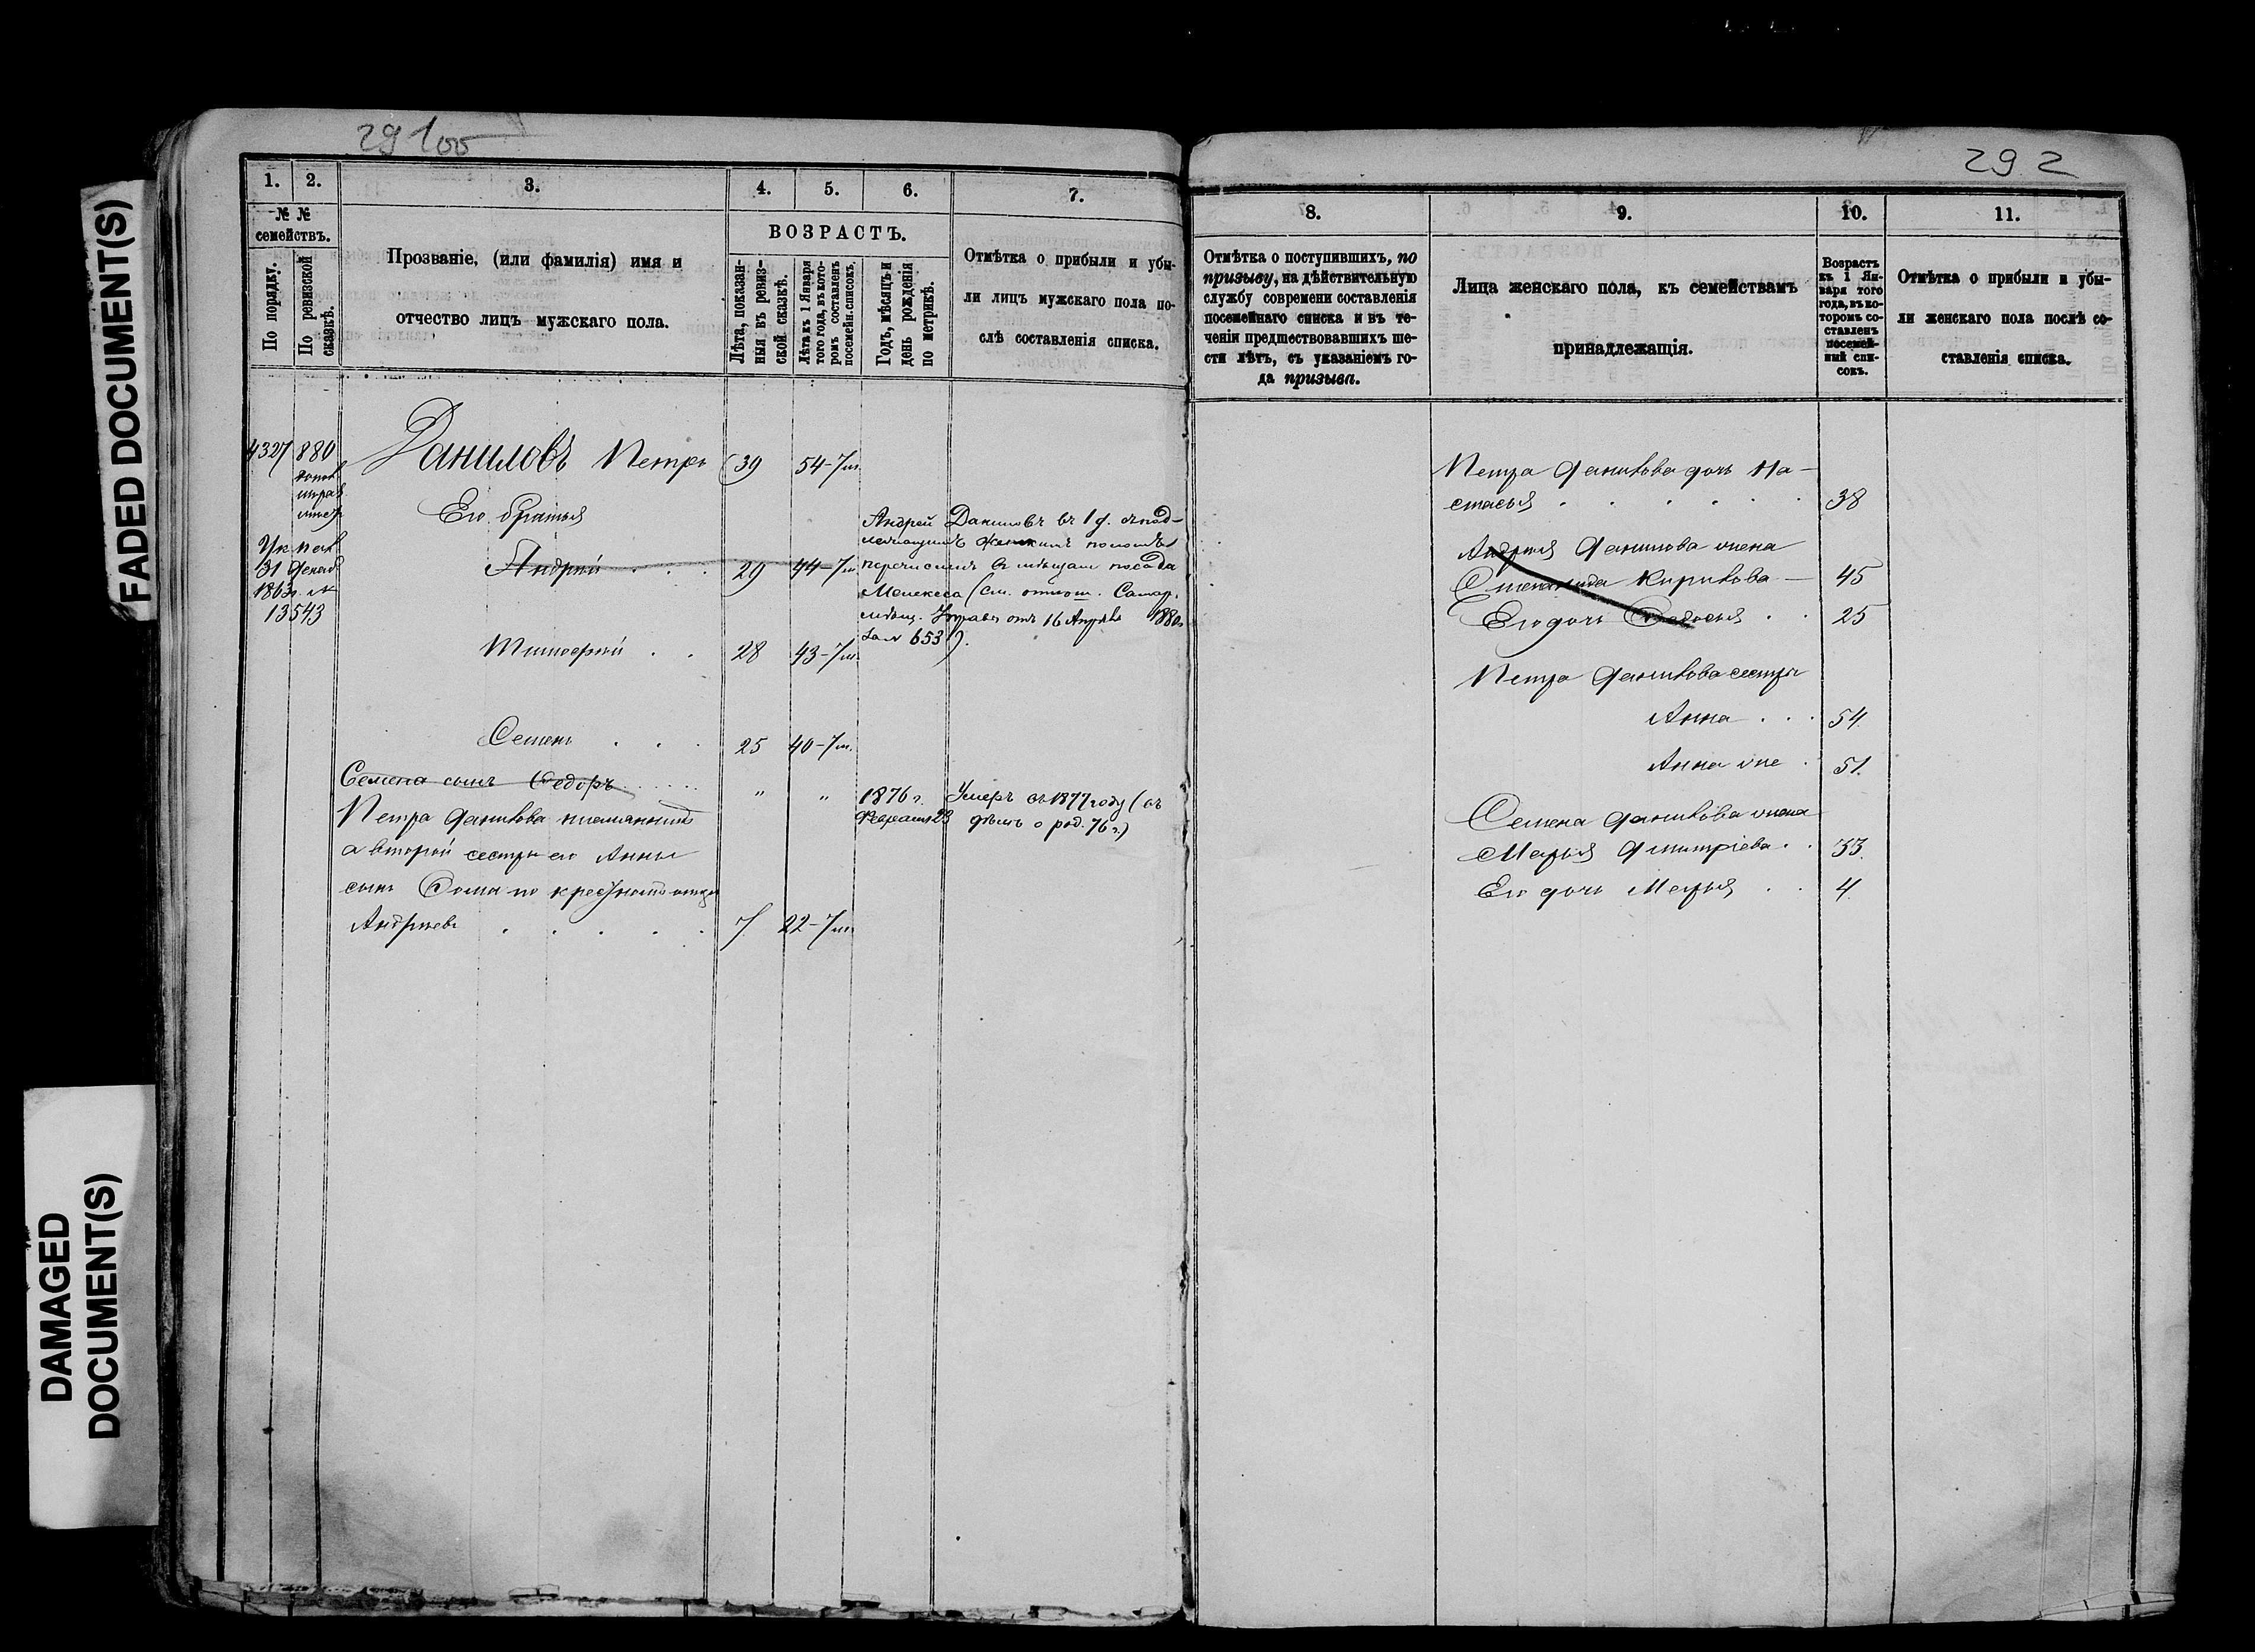 FADED DOCUMENT(S)
DAMAGED
DOCUMENT(S)
29100
1. 2. 3. 4. 5. 6. 7.
№ №
семействъ.
По порядку.
По ревизской
сказкѣ.
Прозваніе, (или фамилія) имя и
отчество лицъ мужскаго пола.
ВОЗРАСТЪ.
Лѣта, показан-
ныя въ ревиз-
ской сказкѣ.
Лѣта къ 1 Января
того года, въ кото-
ромъ составленъ
посемейн. списокъ.
Годъ, мѣсяцъ и
день рожденія
по метрикѣ.
Отмѣтка о прибыли и убы-
ли лицъ мужскаго пола по-
слѣ составленія списка.
4327 880
Даниловъ Петръ 39 54-7м.
Ук
31 Декаб
1863г. №
13543
Его братья
Андрей 29 44-7м
Андрей Даниловъ въ 1 д. съ над-
лежащимъ женскимъ поломъ
перечисленъ въ мѣщане посада
Мелекеса (см. отнош. Самар.
мѣщ. Управы отъ 16 Апрѣля 1880г.
за № 653).
Тимофей 28 43-7м.
Семенъ 25 40-7м.
Семена сынъ Федоръ " " 1876 г.
Февраля 23
Умеръ въ 1877 году (съ
дѣлъ о род. 76 г.)
Петра Данилова племянникъ
а второй сестры его Анны
сынъ Фома по крестному отцу
Андреевъ 7 22-7м.
292
8. 9. 10. 11.
Отмѣтка о поступившихъ, по
призыву, на дѣйствительную
службу современи составленія
посемейнаго списка и въ те-
ченіи предшествовавшихъ ше-
сти лѣтъ, съ указаніемъ го-
да призыва.
Лица женскаго пола, къ семействамъ
принадлежащія.
Возрастъ
къ 1 Ян-
варя того
года, въ ко-
торомъ со-
ставленъ
посемей-
ный спи-
сокъ.
Отмѣтка о прибыли и убы-
ли женскаго пола послѣ со-
ставленія списка.
Петра Данилова дочь На-
стасья 38
Андрея Данилова жена
Степанида Кирилова 45
Его дочь Федосья 25
Петра Данилова сестры
Анна 54
Анна же 51
Семена Данилова жена
Марья Дмитріева 33
Его дочь Марья 4